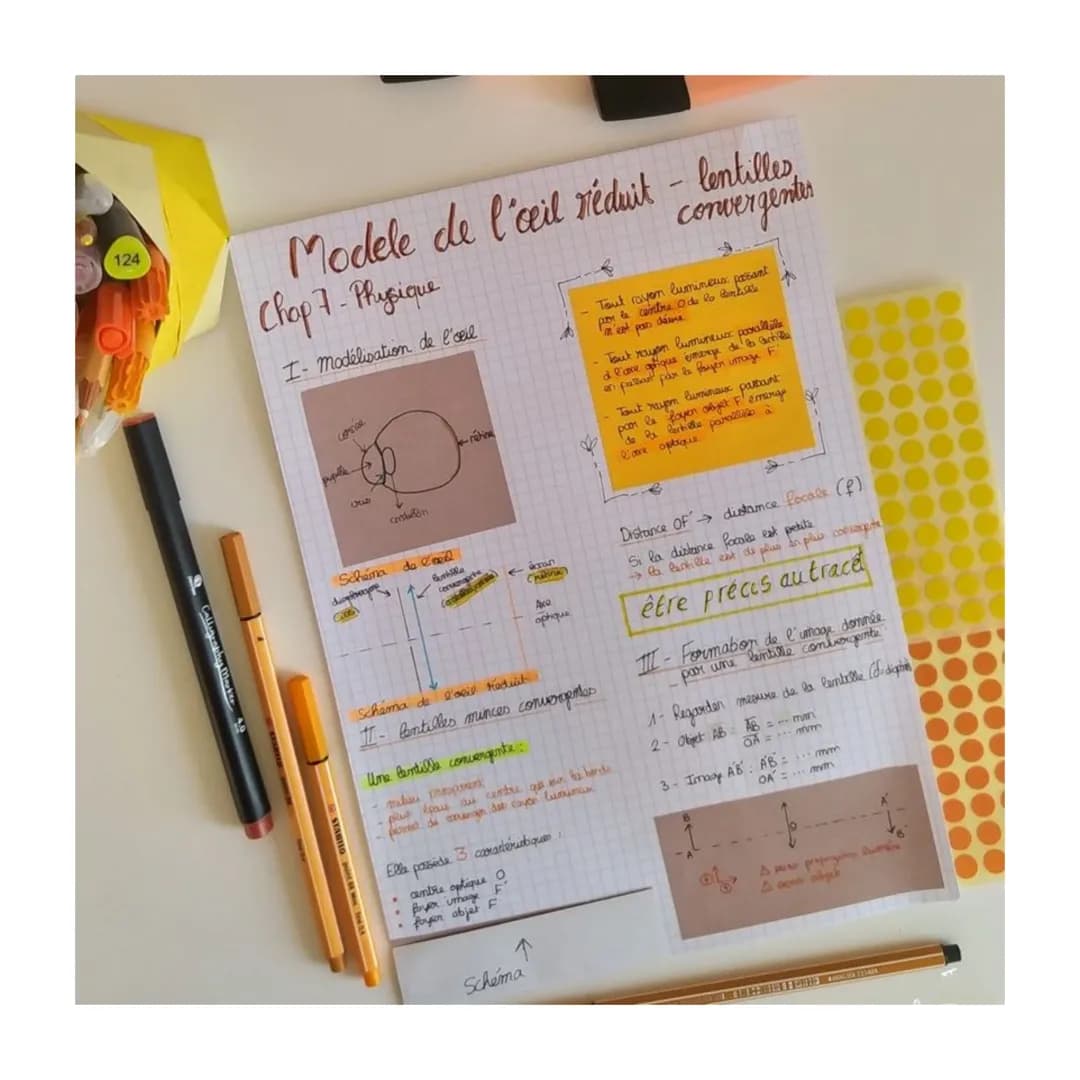 Modele de l'œil réduit - lentilles
convergentes
Chap 7 - Physique
I - Modélisation de l'œil
cornée
pupille
iris
cristallin
rétine
Schéma de l'œil
diaphragme
(iris)
lentille
convergente
écran
(rétine)
Axe
optique
Schéma de l'œil réduit
II - lentilles minces convergentes
Une lentille convergente :
- milieu transparent
- plus épais au centre que sur les bords
- permet de converger des rayon lumineux
Elle possède 3 caractéristiques :
• centre optique O
• foyer image F'
• foyer objet F
Schéma
- Tout rayon lumineux passant
par le centre O de la lentille
n'est pas dévié
- Tout rayon lumineux parallèle
à l'axe optique émerge de la lentille
en passant par le foyer image F'
- Tout rayon lumineux passant
par le foyer objet F, émerge
de la lentille parallèle à
l'axe optique
Distance OF' → distance focale (f)
Si la distance focale est petite
→ la lentille est de plus en plus convergente
être précis au tracé
III - Formation de l'image donnée
par une lentille convergente
1 - Regarder mesure de la lentille
2 - Objet AB : AB = ... mm
OA = ... mm
3 - Image A'B' : A'B' = ... mm
OA' = ... mm
B
A
O
A'
B'
Δ sens propagation lumière
Δ sens objet
124
Calligraphy Marker
4.0
STABILO
STABILO
point 88